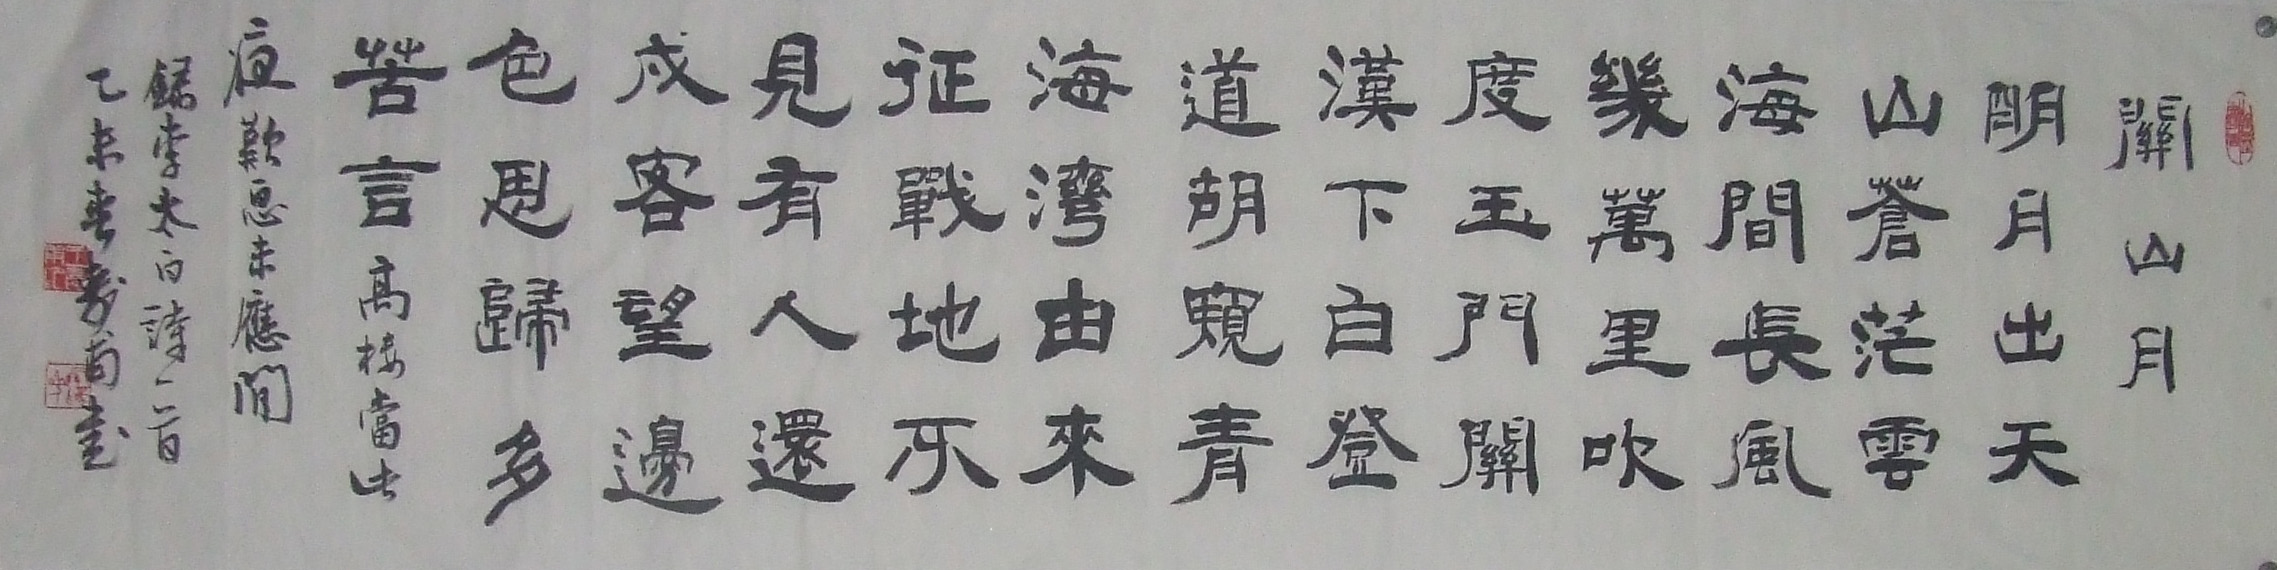 關山月
明月出天
山蒼茫雲
海間長風
幾萬里吹
度玉門關
漢下白登
道胡窺青
海灣由來
征戰地不
見有人還
戍客望邊
色思歸多
苦言高樓當此
夜歎息未應閒
錄李太白詩一首
乙未春